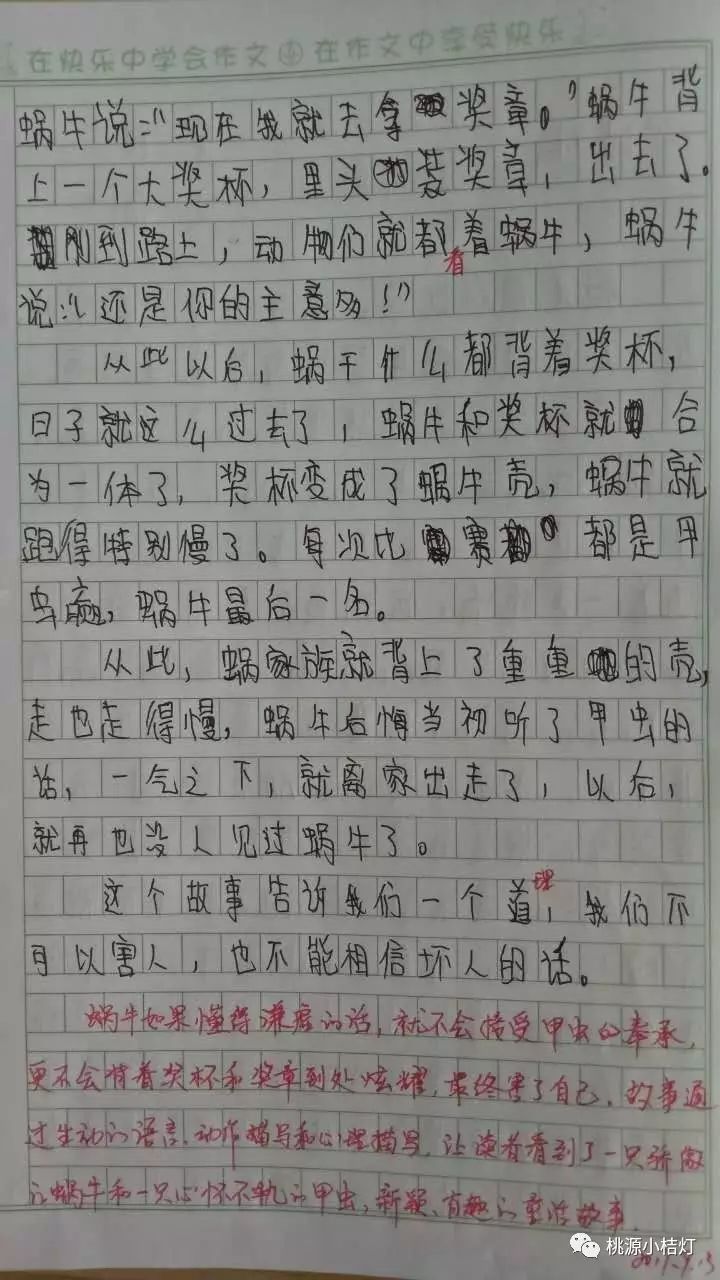 在快乐中学会作文 在作文中享受快乐
蜗牛说:“现在我就去拿奖章。”蜗牛背
上一个大奖杯，里头装奖章，出去了。
刚到路上，动物们就都看着蜗牛，蜗牛
说:“还是你的主意多!”
从此以后，蜗干什么都背着奖杯，
日子就这么过去了，蜗牛和奖杯就合
为一体了，奖杯变成了蜗牛壳，蜗牛就
跑得特别慢了。每次比赛都是甲
虫赢，蜗牛最后一名。
从此，蜗家族就背上了重重的壳，
走也走得慢，蜗牛后悔当初听了甲虫的
话，一气之下，就离家出走了，以后，
就再也没人见过蜗牛了。
这个故事告诉我们一个道理，我们不
可以害人，也不能相信坏人的话。
蜗牛如果懂得谦虚的话，就不会接受甲虫的奉承，
更不会背着奖杯和奖章到处炫耀，最终害了自己。故事通
过生动的语言、动作描写和心理描写，让读者看到了一只骄傲
的蜗牛和一只心怀不轨的甲虫，新颖、有趣的童话故事。
桃源小桔灯